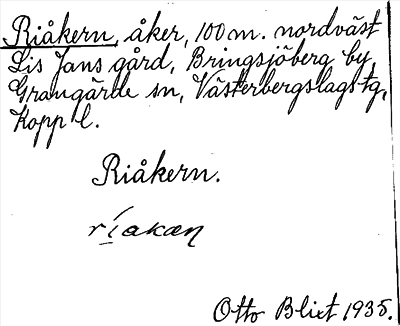 Riåkern, åker, 100 m. nordväst
Lis Jans gård, Bringsjöberg by,
Grangärde sn, Västerbergslags tg,
Kopp l.
Riåkern.
ríakaṇ
Otto Blixt 1935.